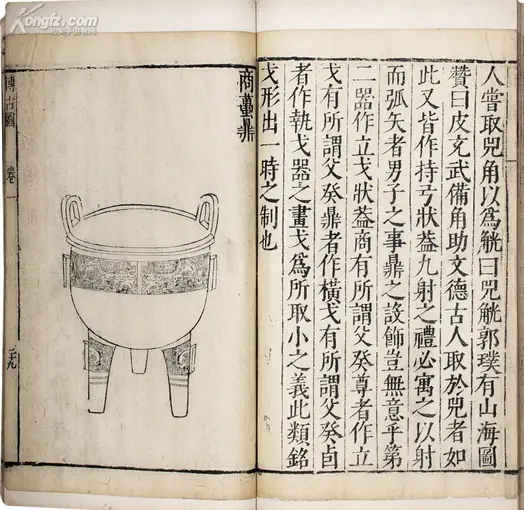 人嘗取兕角以為觥曰兕觥郭璞有山海圖
贊曰皮充武備角助文德古人取於兕者如
此又皆作持弓狀蓋九射之禮必寓之以射
而弧矢者男子之事鼎之設飾豈無意乎第
二器作立戈狀蓋商有所謂父癸尊者作立
戈有所謂父癸鼎者作橫戈有所謂父癸卣
者作執戈器之畫戈為所取小之義此類銘
戈形出一時之制也
商鼎
博古圖
卷一
二十九
Kongfz.com